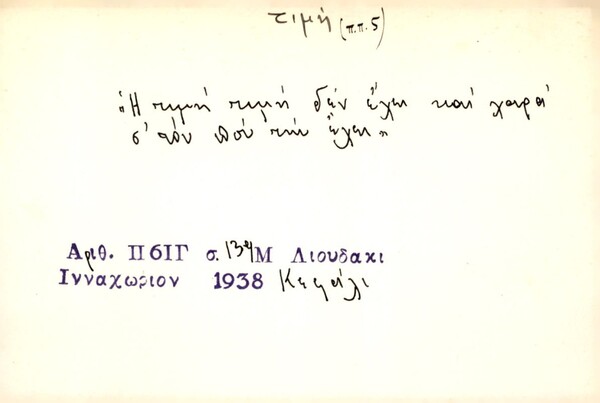 τιμή (π.π. 5)
«Ἡ τιμή τιμή δέν ἔχει καί χαρά
σ' τόν πού τήν ἔχει»
Αριθ. Π6ΙΓ σ. 134 Μ Λιουδακι
Ινναχωριον 1938 Κεφάλι